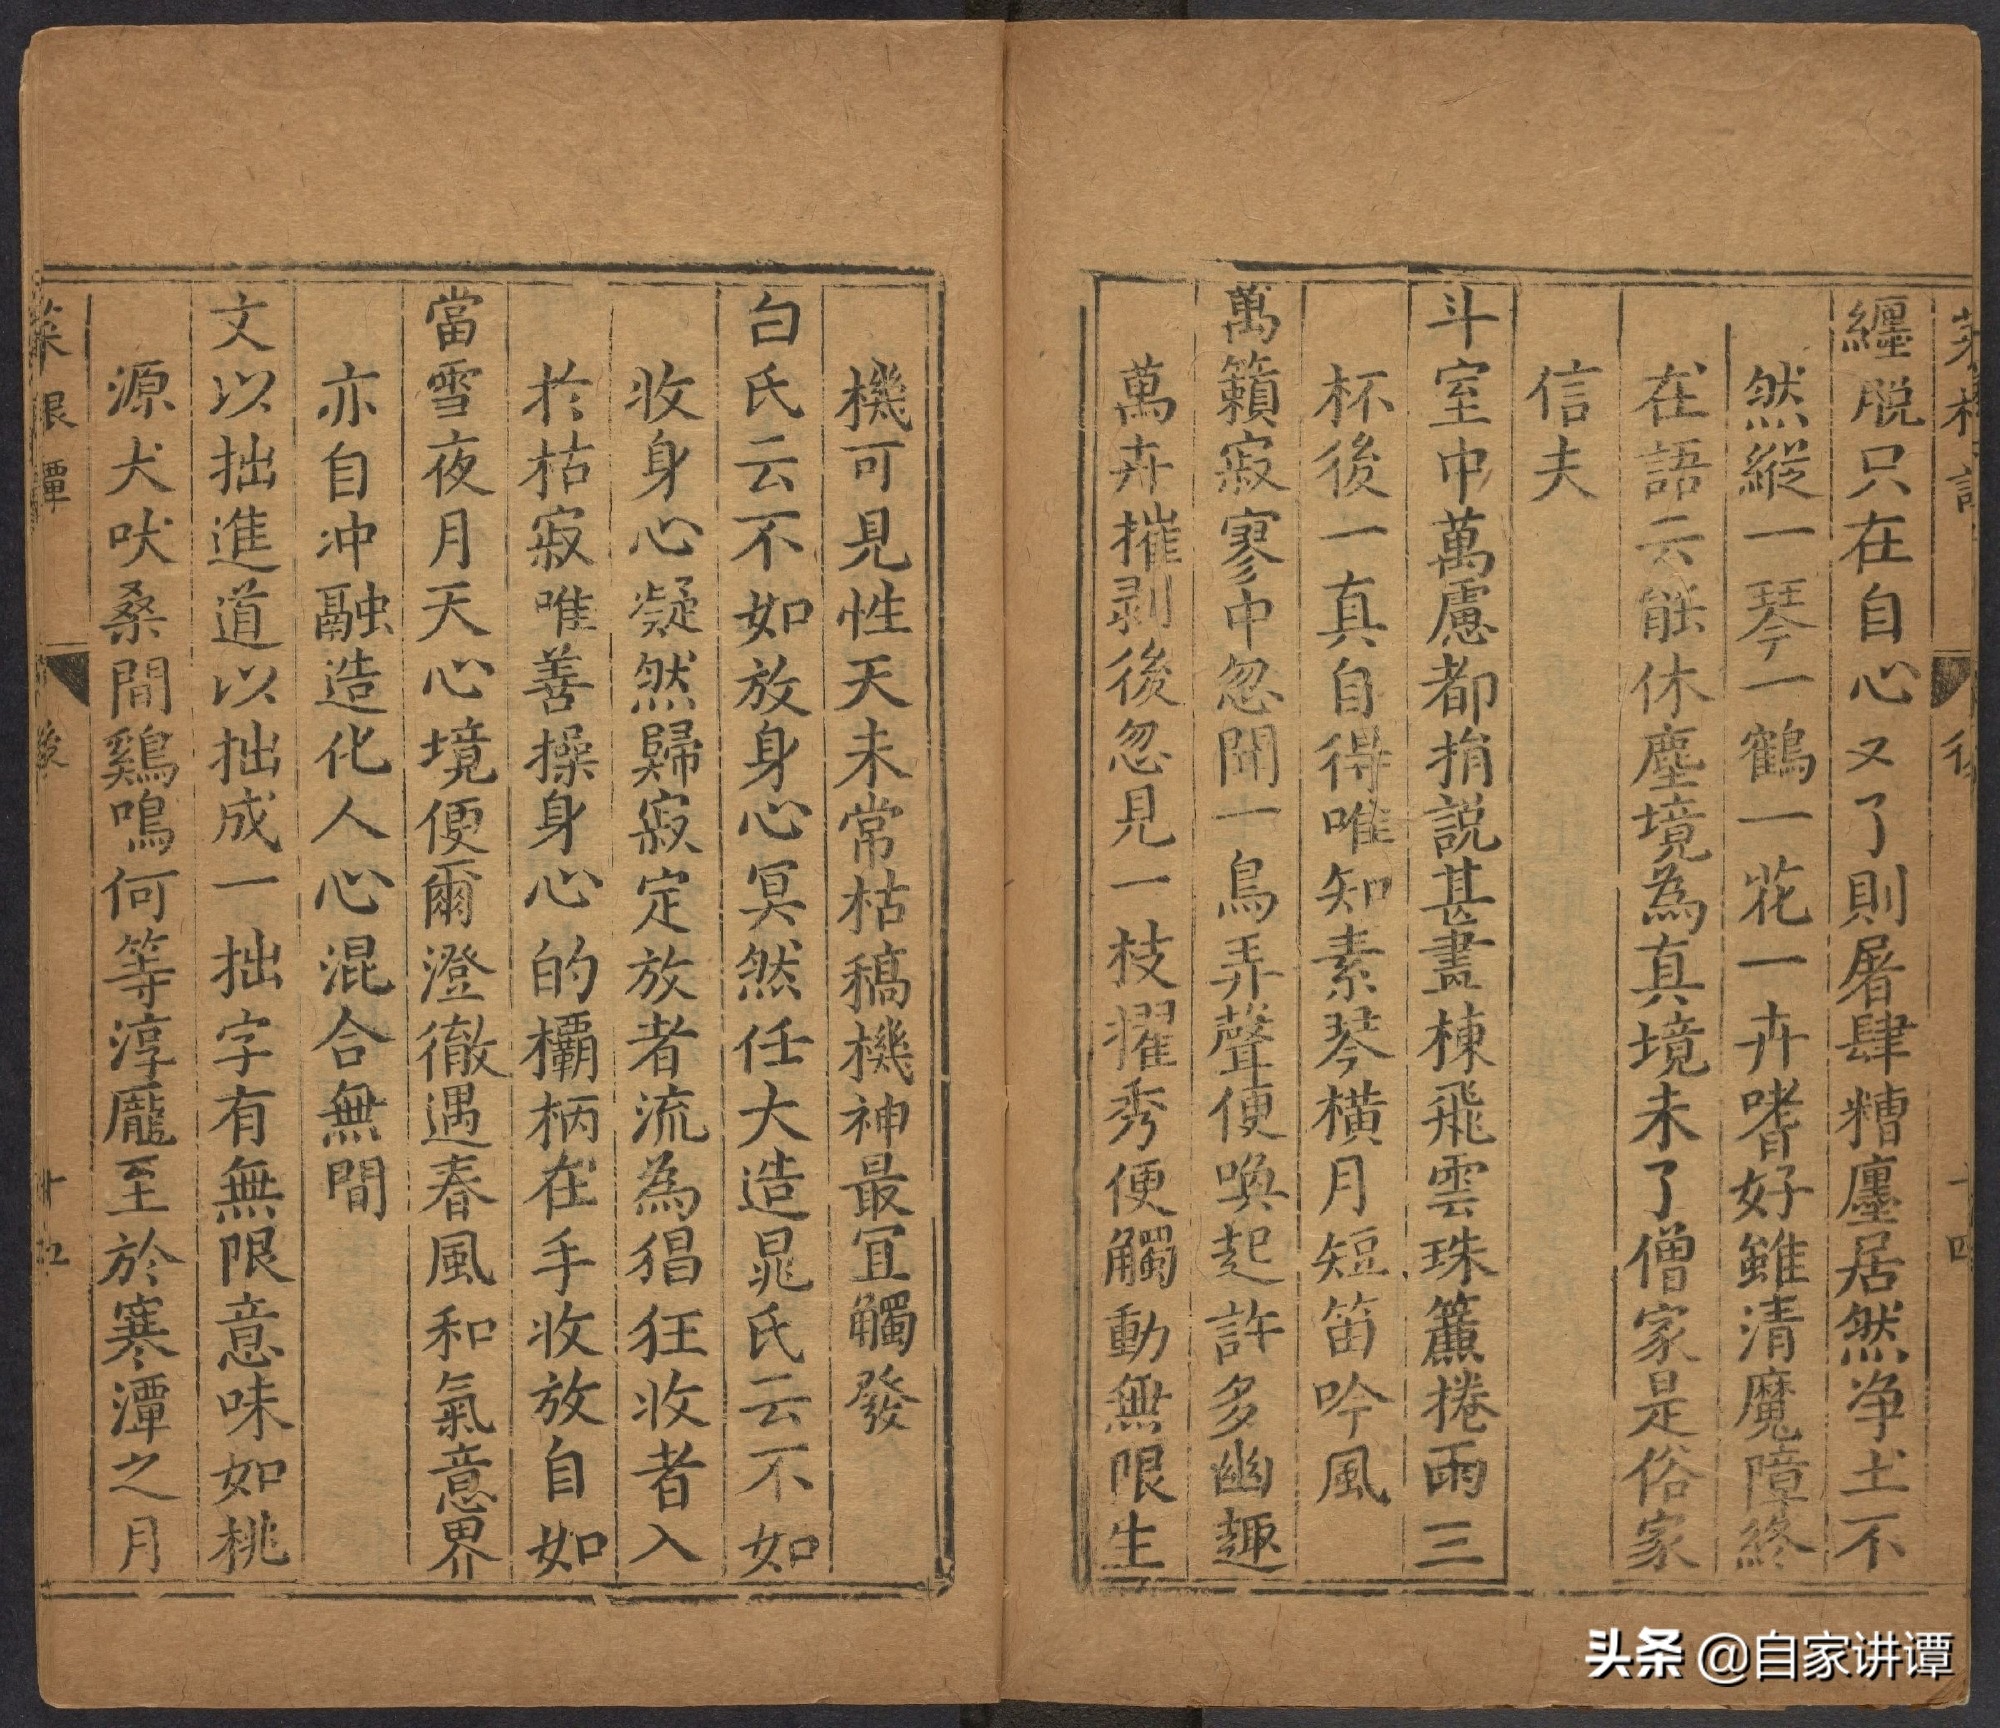 纏脫只在自心又了則屠肆糟廛居然净土不
然縱一琴一鶴一花一卉嗜好雖清魔障終
在語云能休塵境為真境未了僧家是俗家
信夫
斗室中萬慮都捐説甚畫棟飛雲珠簾捲雨三
杯後一真自得唯知素琴橫月短笛吟風
萬籟寂寥中忽聞一鳥弄聲便喚起許多幽趣
萬卉摧剥後忽見一枝擢秀便觸動無限生
機可見性天未常枯稿機神最宜觸發
白氏云不如放身心冥然任大造晁氏云不如
收身心凝然歸寂定放者流為猖狂收者入
於枯寂唯善操身心的欛柄在手收放自如
當雪夜月天心境便爾澄徹遇春風和氣意界
亦自冲融造化人心混合無間
文以拙進道以拙成一拙字有無限意味如桃
源犬吠桑間鷄鳴何等淳龐至於寒潭之月
菜根譚
後
头条 @自家讲谭